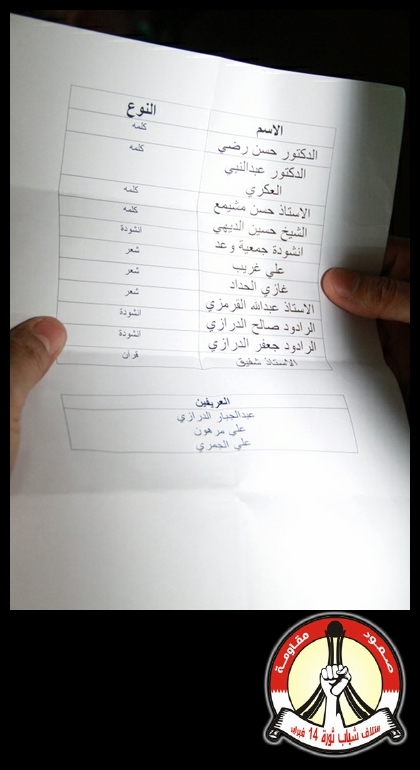 الاسم النوع
الدكتور حسن رضي كلمه
الدكتور عبدالنبي كلمه
العكري
الاستاذ حسن مشيمع كلمه
الشيخ حسين الديهي كلمه
انشودة جمعية وعد انشودة
علي غريب شعر
غازي الحداد شعر
الاستاذ عبدالله القرمزي شعر
الرادود صالح الدرازي انشودة
الرادود جعفر الدرازي انشودة
الاستاذ شفيق قران
العريفين
عبدالجبار الدرازي
علي مرهون
علي الجمري
صمود مقاومة
ائتلاف شباب ثورة 14 فبراير